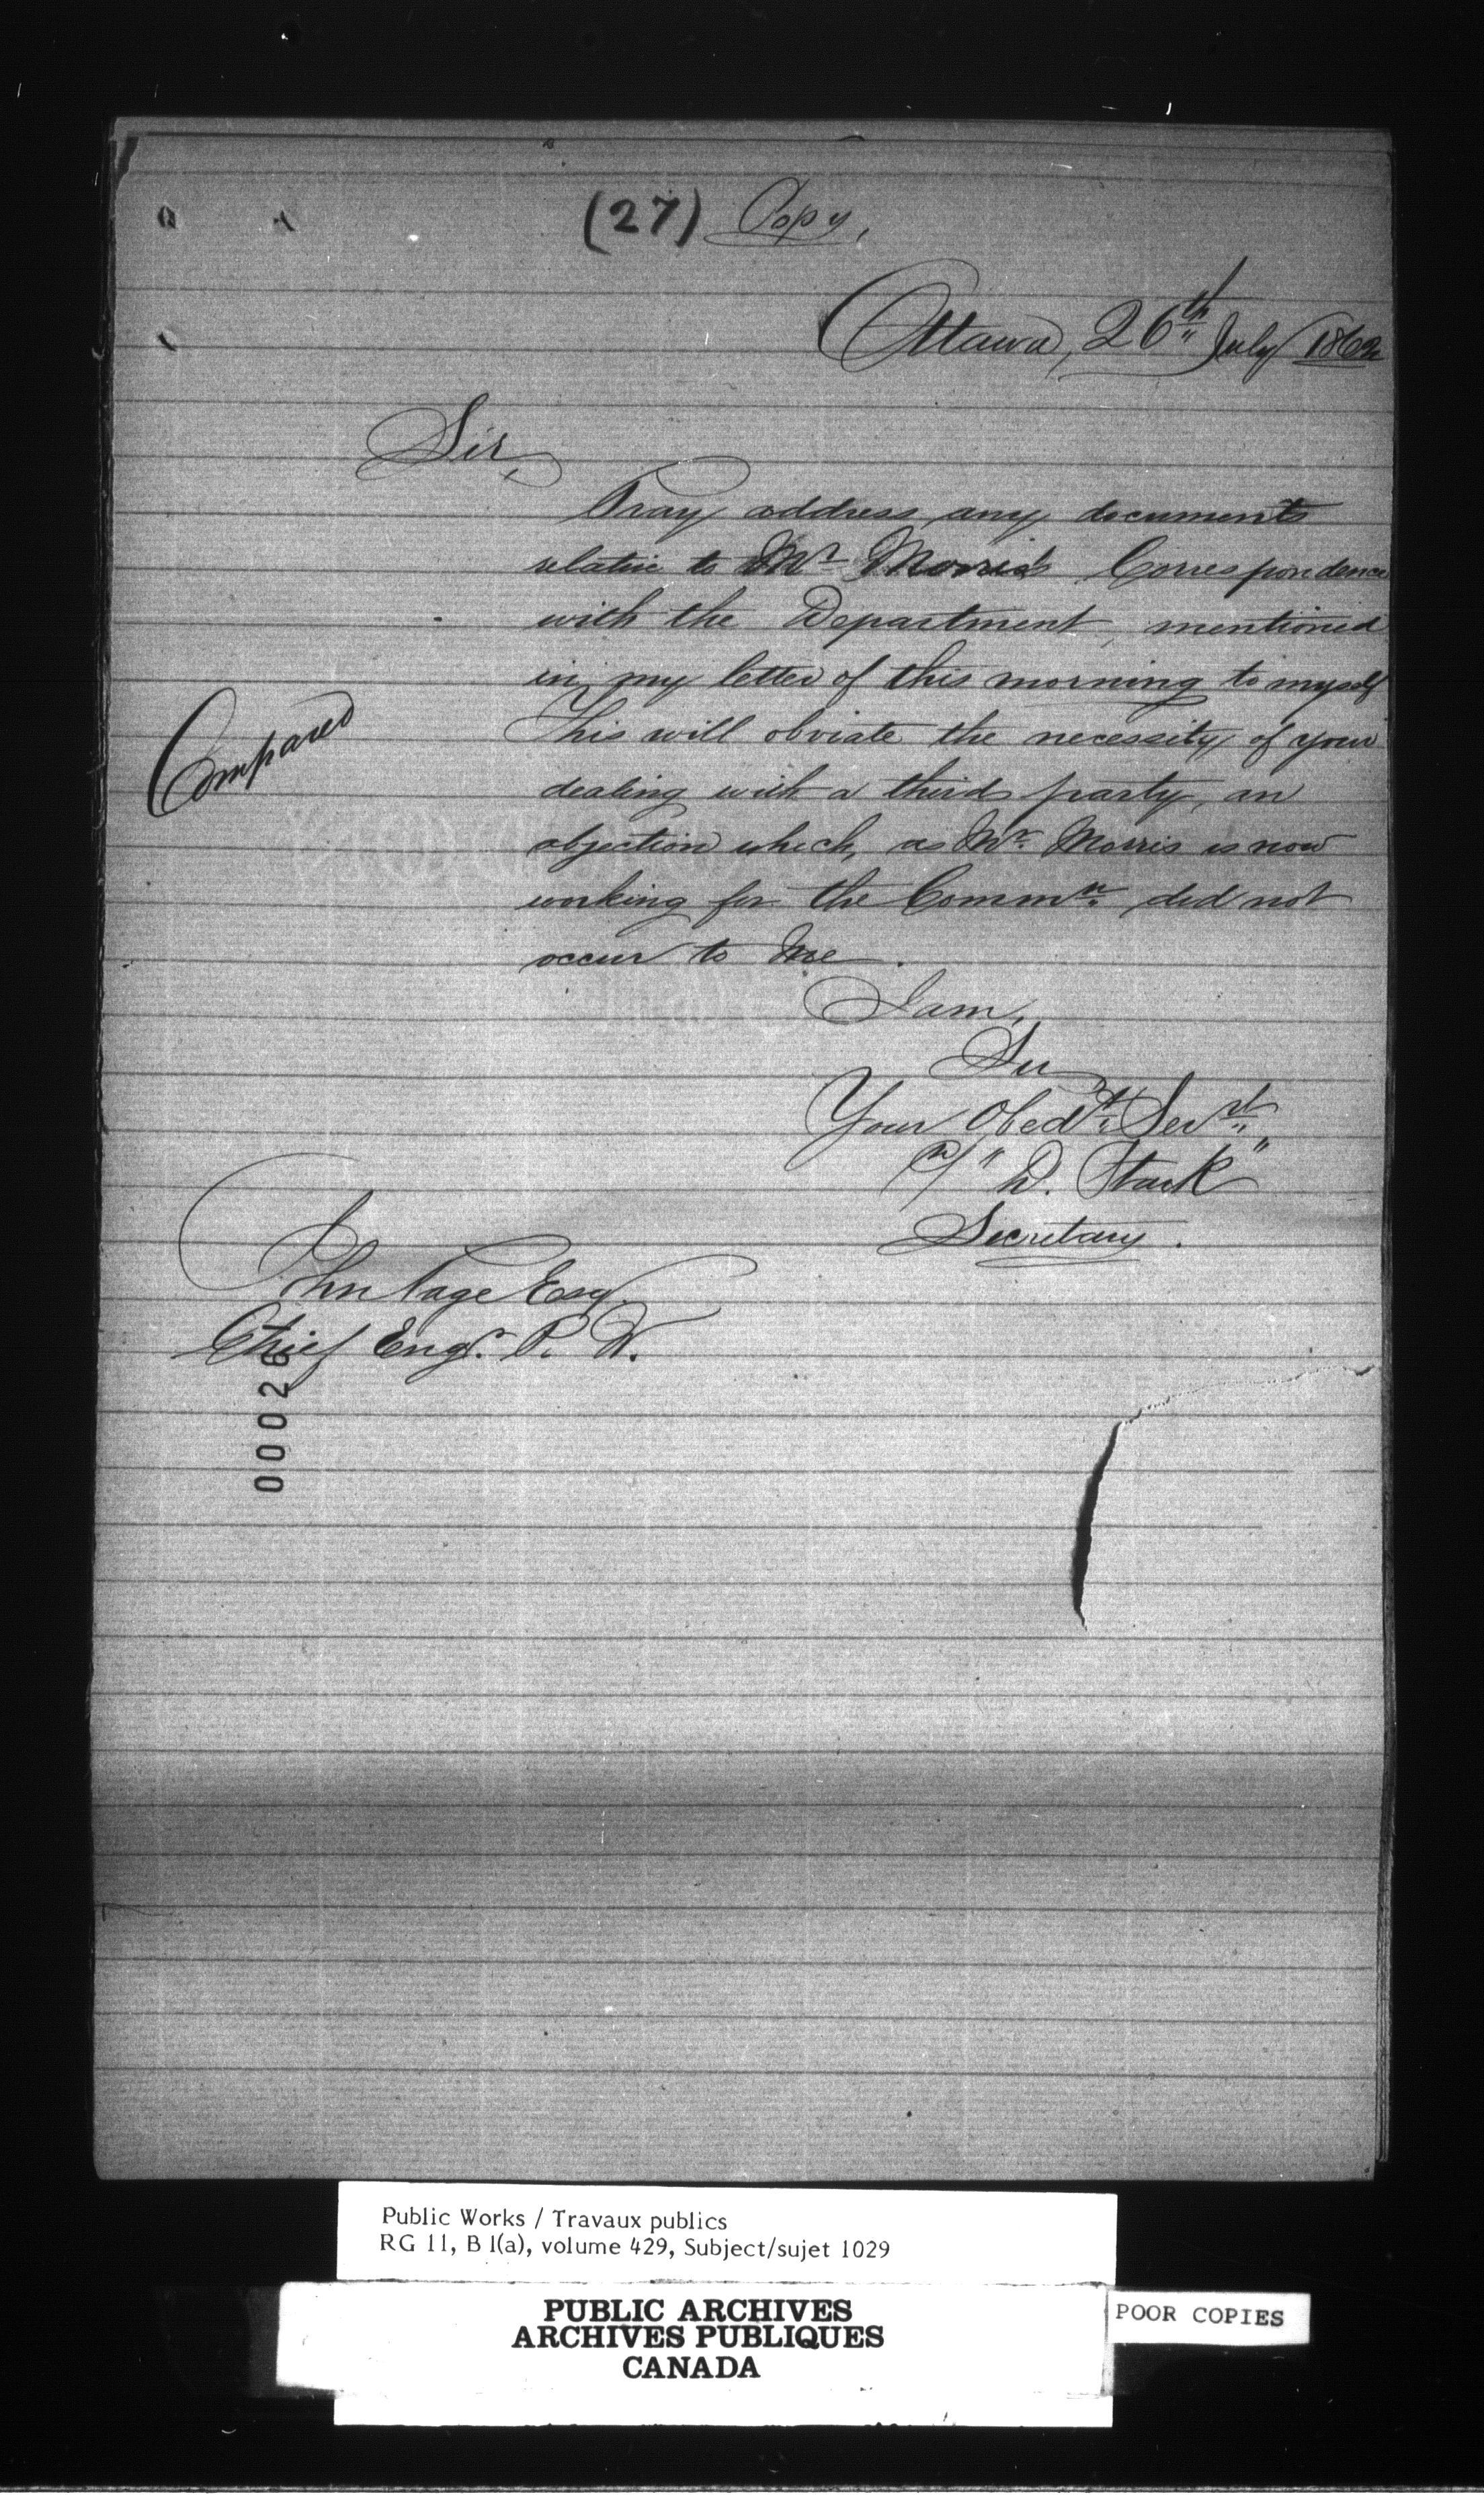 (27) Copy,
Ottawa, 26th July 1862
Sir,
Pray address any documents
relative to Mr Morris's Correspondence
with the Department, mentioned
in my letter of this morning to myself
This will obviate the necessity of your
dealing with a third party, an
objection which, as Mr. Morris is now
working for the Commn. did not
occur to me.
Compared
I am,
Sir
Your Obedt. Servt.
"D. Stark"
Secretary.
John Page Esq
Chief Engr. P. W.
00026
Public Works / Travaux publics
RG 11, B 1(a), volume 429, Subject/sujet 1029
PUBLIC ARCHIVES
ARCHIVES PUBLIQUES
CANADA
POOR COPIES